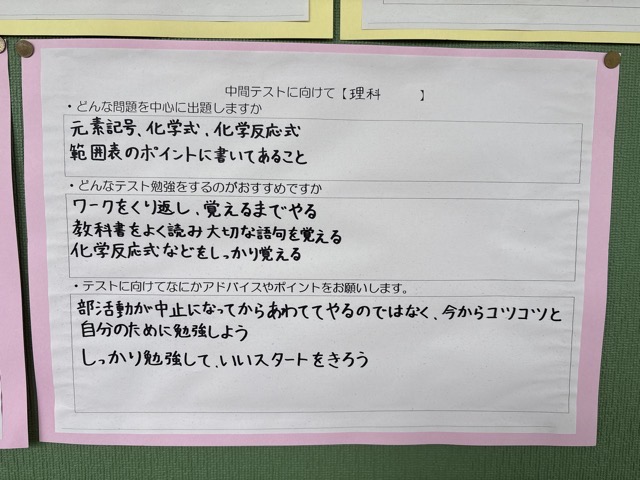 中間テストに向けて【理科　　】
・どんな問題を中心に出題しますか
元素記号、化学式、化学反応式
範囲表のポイントに書いてあること
・どんなテスト勉強をするのがおすすめですか
ワークをくり返し、覚えるまでやる
教科書をよく読み大切な語句を覚える
化学反応式などをしっかり覚える
・テストに向けてなにかアドバイスやポイントをお願いします。
部活動が中止になってからあわててやるのではなく、今からコツコツと
自分のために勉強しよう
しっかり勉強して、いいスタートをきろう